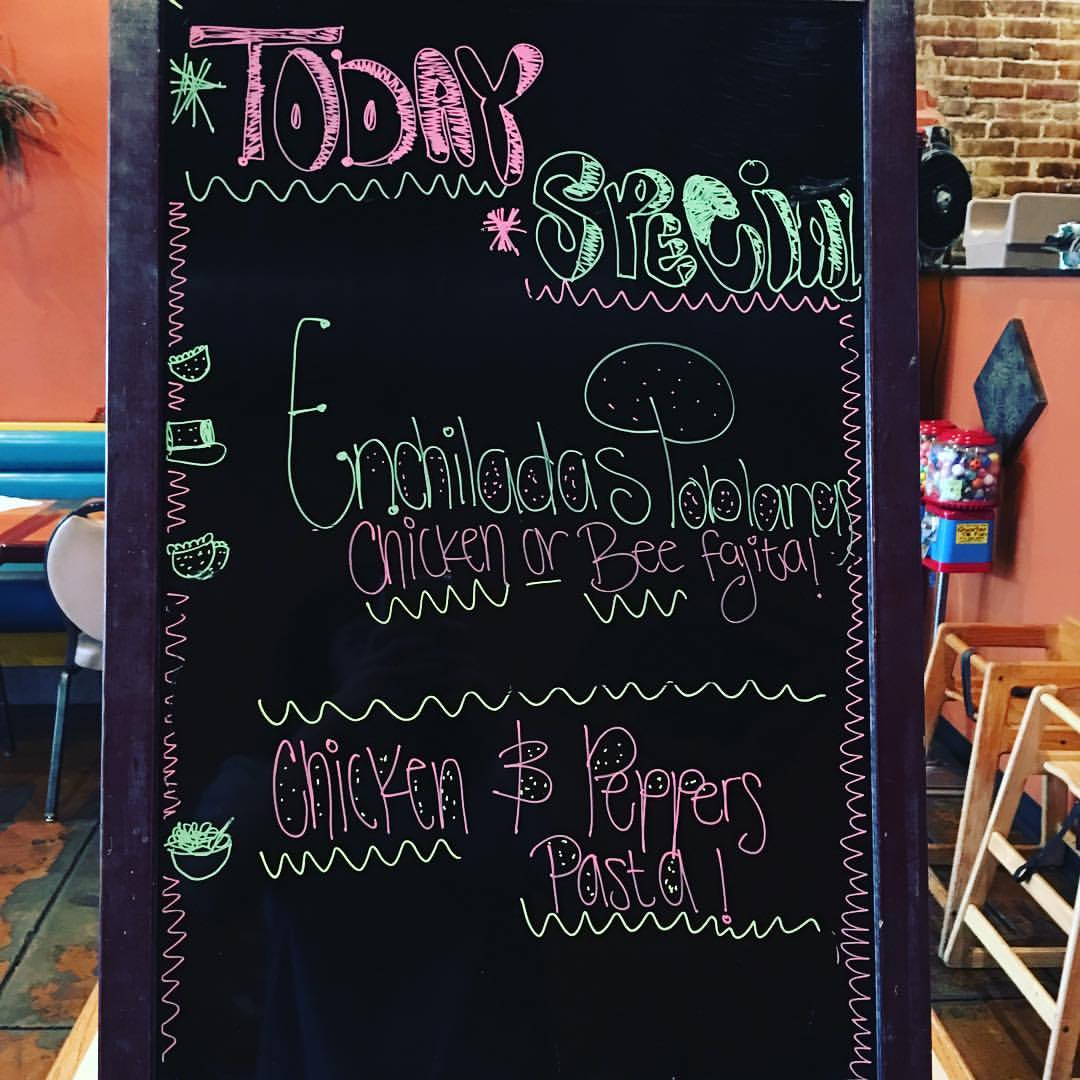 TODAY
SPECIAL
Enchiladas Poblanas
Chicken or Bee fajita!
Chicken & Peppers
Pasta!